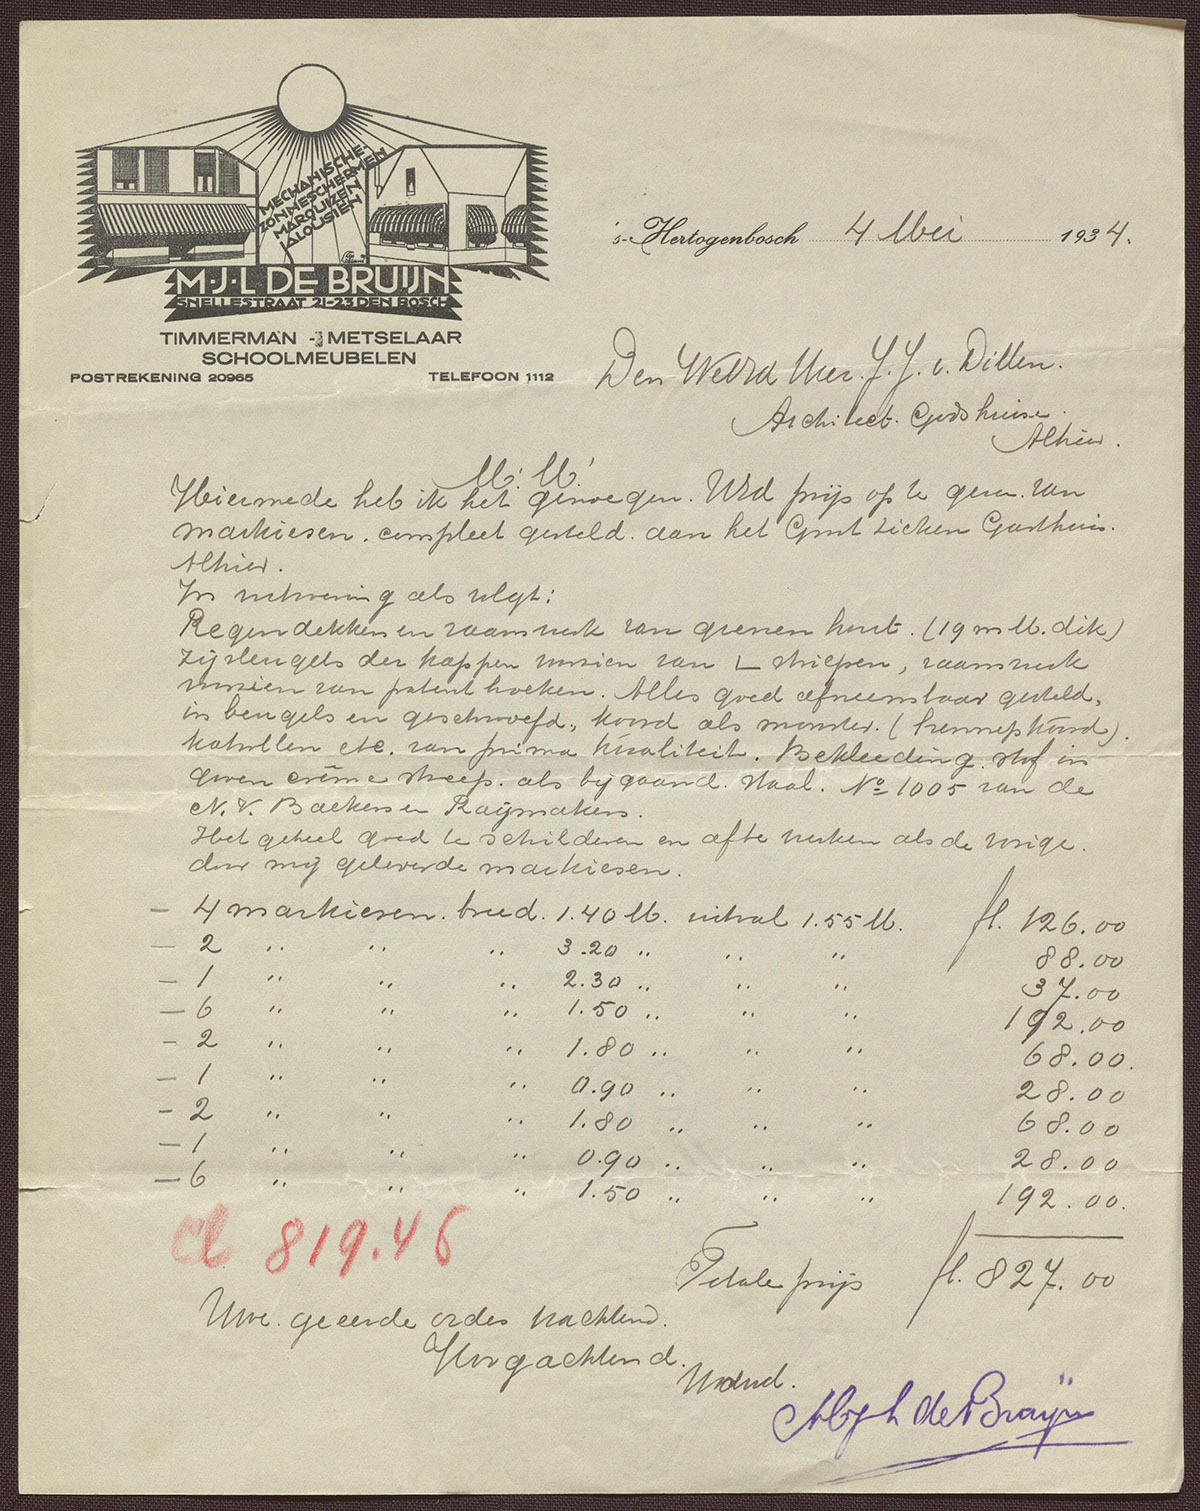 MECHANISCHE-
ZONNESCHERMEN
MARQUIZEN
JALOUSIEN
M·J·L DE BRUIJN
SNELLESTRAAT 21-23 DEN BOSCH
TIMMERMAN - METSELAAR
SCHOOLMEUBELEN
POSTREKENING 20965 TELEFOON 1112
's-Hertogenbosch 4 Mei 1934.
Den WelEd Heer. J. J. v. Dillen.
Architect. Godshuise.
Alhier.
M. M.
Hiermede heb ik het genoegen. UEd prijs op te geven. van
markiesen. compleet gesteld. aan het Groot Zieken Gasthuis.
Alhier.
In uitvoering als volgt:
Regendekken en raamwerk van grenen hout. (19 m M. dik)
Zijstengels der kappen voorzien van L strippen, raamwerk
voorzien van patent hoeken. Alles goed afneembaar gesteld,
in beugels en geschroefd, koord als monster. (hennepkoord).
katrollen etc. van prima kwaliteit. Bekleeding. stof in
groen crême streep. als bijgaand. Staal. No 1005 van de
N. V. Backers en Raijmakers.
Het geheel goed te schilderen en afte werken als de vorige.
door mij geleverde markiesen.
- 4 markiesen. breed. 1.40 M. uitval 1.55 M. fl. 126.00
- 2 " " " 3.20 " " " 88.00
- 1 " " " 2.30 " " " 37.00
- 6 " " " 1.50 " " " 192.00
- 2 " " " 1.80 " " " 68.00.
- 1 " " " 0.90 " " " 28.00
- 2 " " " 1.80 " " " 68.00
- 1 " " " 0.90 " " " 28.00
- 6 " " " 1.50 " " " 192.00.
819.46
Totale prijs fl. 827.00
Uwe. geeerde orders wachtend.
Hoogachtend.
UwEdw.
MJL de Bruijn